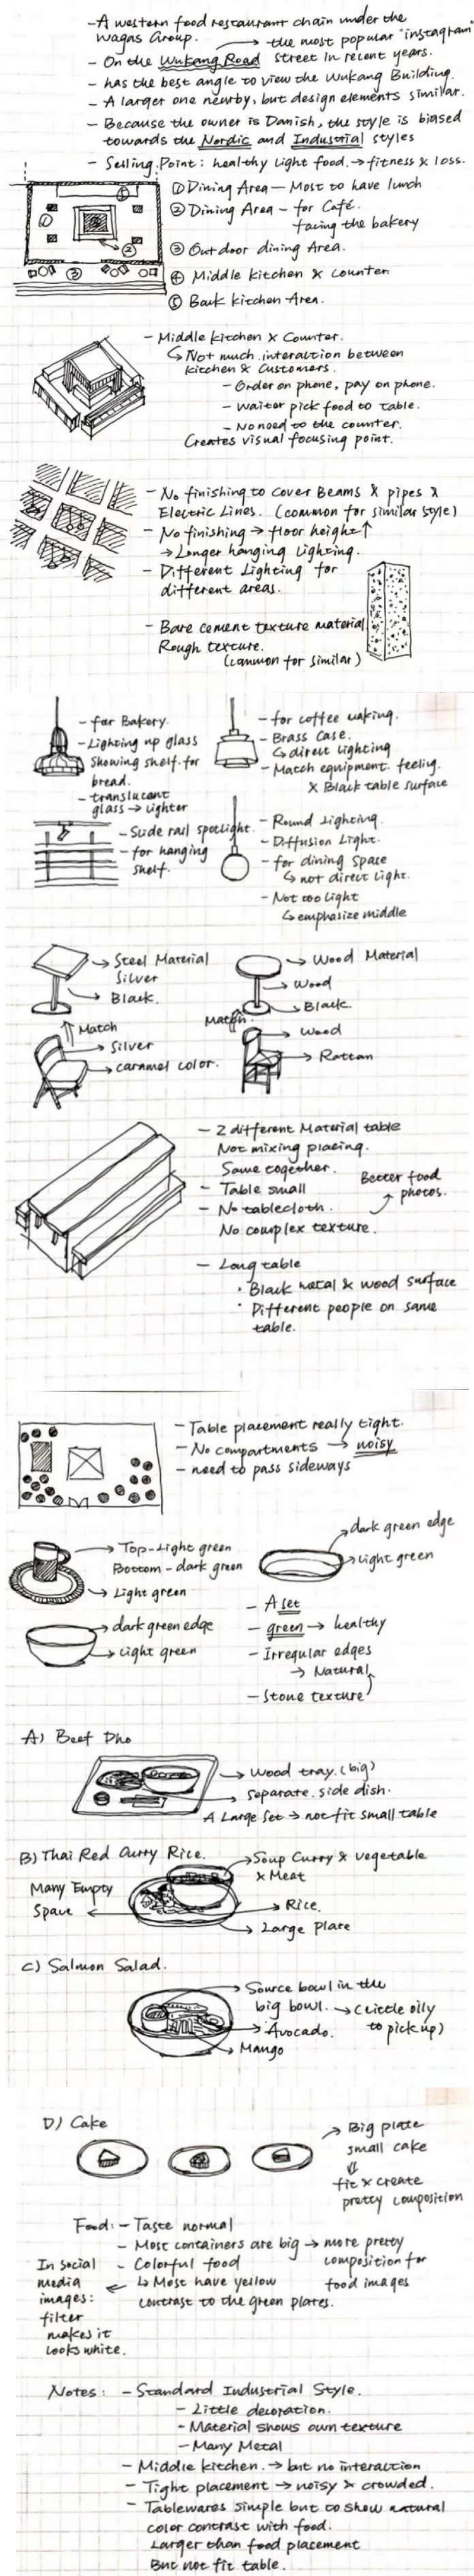 -A western food restaurant chain under the
Wagas Group.
→ the most popular "instagram"
- On the Wukang Road street in recent years.
- has the best angle to view the Wukang Building.
- A larger one nearby, but design elements similar.
- Because the owner is Danish, the style is biased
towards the Nordic and Industrial styles
- Selling Point: healthy light food. → fitness & loss.
① Dining Area - Most to have lunch
② Dining Area - for Café.
facing the bakery
③ Outdoor dining Area.
④ Middle kitchen & counter
⑤ Back kitchen Area.
① ④ ② ③
- Middle kitchen & Counter.
↳ Not much interaction between
kitchen & Customers.
- Order on phone, pay on phone.
- Waiter pick food to table.
- No need to the counter.
Creates visual focusing point.
- No finishing to cover Beams & pipes &
Electric Lines. (common for similar style)
- No finishing → floor height ↑
→ Longer hanging Lighting.
- Different Lighting for
different areas.
- Bare cement texture material
Rough texture.
(common for similar)
- for Bakery.
- Lighting up glass
showing shelf for
bread.
- translucant
glass → lighter
- for coffee making.
- Brass Case.
↳ direct lighting
- Match equipment feeling.
& Black table surface
- Slide rail spotlight.
- for hanging
shelf.
- Round Lighting.
- Diffusion Light.
- for dining space
↳ not direct light.
- Not too light
↳ emphasize middle
→ Steel Material
Silver
→ Black.
↑ Match
→ Silver
→ caramel color.
→ Wood Material
→ Wood
→ Black
Match.
→ Wood
→ Rattan
- 2 different Material table
Not mixing placing.
Same together.
- Table small
- No tablecloth.
No complex texture.
Better food
photos.
- Long table
· Black metal & wood surface
· Different people on same
table.
- Table placement really tight.
- No compartments → noisy
- need to pass sideways
→ Top-Light green
Bottom - dark green
→ Light green
→ dark green edge
→ Light green
→ dark green edge
→ Light green
- A set
- green → healthy
- Irregular edges
→ Natural
- Stone texture
A) Beef Pho
→ Wood tray. (big)
→ separate side dish.
A Large Set → not fit small table
B) Thai Red Curry Rice.
→ Soup Curry & vegetable
& Meat
Many Empty
Space
→ Rice.
→ Large Plate
C) Salmon Salad.
→ Source bowl in the
big bowl. → (little oily
to pick up)
→ Avocado.
→ Mango
D) Cake
→ Big plate
small cake
⇓
fit & create
pretty composition
Food: - Taste normal
- Most containers are big → more pretty
composition for
food images
- Colorful food
↳ Most have yellow
contrast to the green plates.
In social
media
images:
filter
makes it
looks white.
Notes: - Standard Industrial Style.
- Little decoration.
- Material shows own texture
- Many Metal
- Middle kitchen. → but no interaction
- Tight placement → noisy & crowded.
- Tablewares simple but to show natural
color contrast with food.
Larger than food placement
But not fit table.